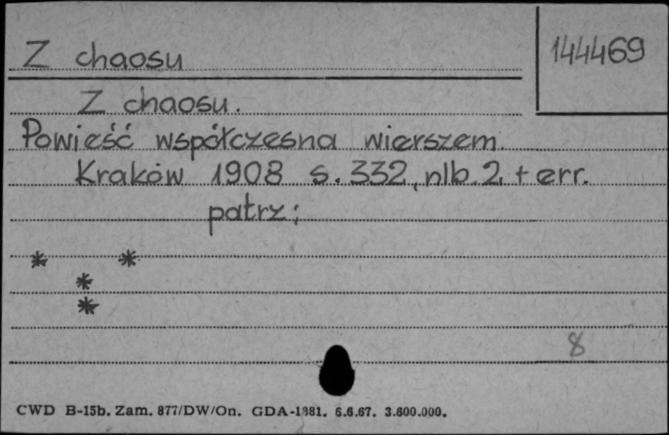 Z chaosu
144469
Z chaosu.
Powieść współczesna wierszem.
Kraków 1908 s. 332, nlb. 2, + err.
patrz:
* *
*
*
8
CWD B-15b. Zam. 877/DW/On. GDA-1881. 6.6.67. 3.600.000.